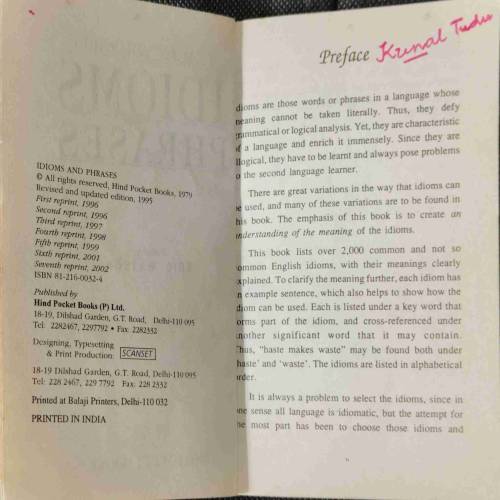 IDIOMS AND PHRASES
© All rights reserved, Hind Pocket Books, 1979
Revised and updated edition, 1995
First reprint, 1996
Second reprint, 1996
Third reprint, 1997
Fourth reprint, 1998
Fifth reprint, 1999
Sixth reprint, 2001
Seventh reprint, 2002
ISBN 81-216-0032-4
Published by
Hind Pocket Books (P) Ltd.
18-19, Dilshad Garden, G.T. Road, Delhi-110 095
Tel: 2282467, 2297792 • Fax: 2282332
Designing, Typesetting
& Print Production: SCANSET
18-19 Dilshad Garden, G.T. Road, Delhi-110 095
Tel: 228 2467, 229 7792 Fax: 228 2332
Printed at Balaji Printers, Delhi-110 032
PRINTED IN INDIA
Preface Kunal
dioms are those words or phrases in a language whose
meaning cannot be taken literally. Thus, they defy
grammatical or logical analysis. Yet, they are characteristic
of a language and enrich it immensely. Since they are
llogical, they have to be learnt and always pose problems
o the second language learner.
There are great variations in the way that idioms can
be used, and many of these variations are to be found in
his book. The emphasis of this book is to create an
understanding of the meaning of the idioms.
This book lists over 2,000 common and not so
ommon English idioms, with their meanings clearly
xplained. To clarify the meaning further, each idiom has
n example sentence, which also helps to show how the
diom can be used. Each is listed under a key word that
orms part of the idiom, and cross-referenced under
nother significant word that it may contain.
Thus, "haste makes waste" may be found both under
haste' and 'waste'. The idioms are listed in alphabetical
rder.
It is always a problem to select the idioms, since in
one sense all language is idiomatic, but the attempt for
he most part has been to choose those idioms and